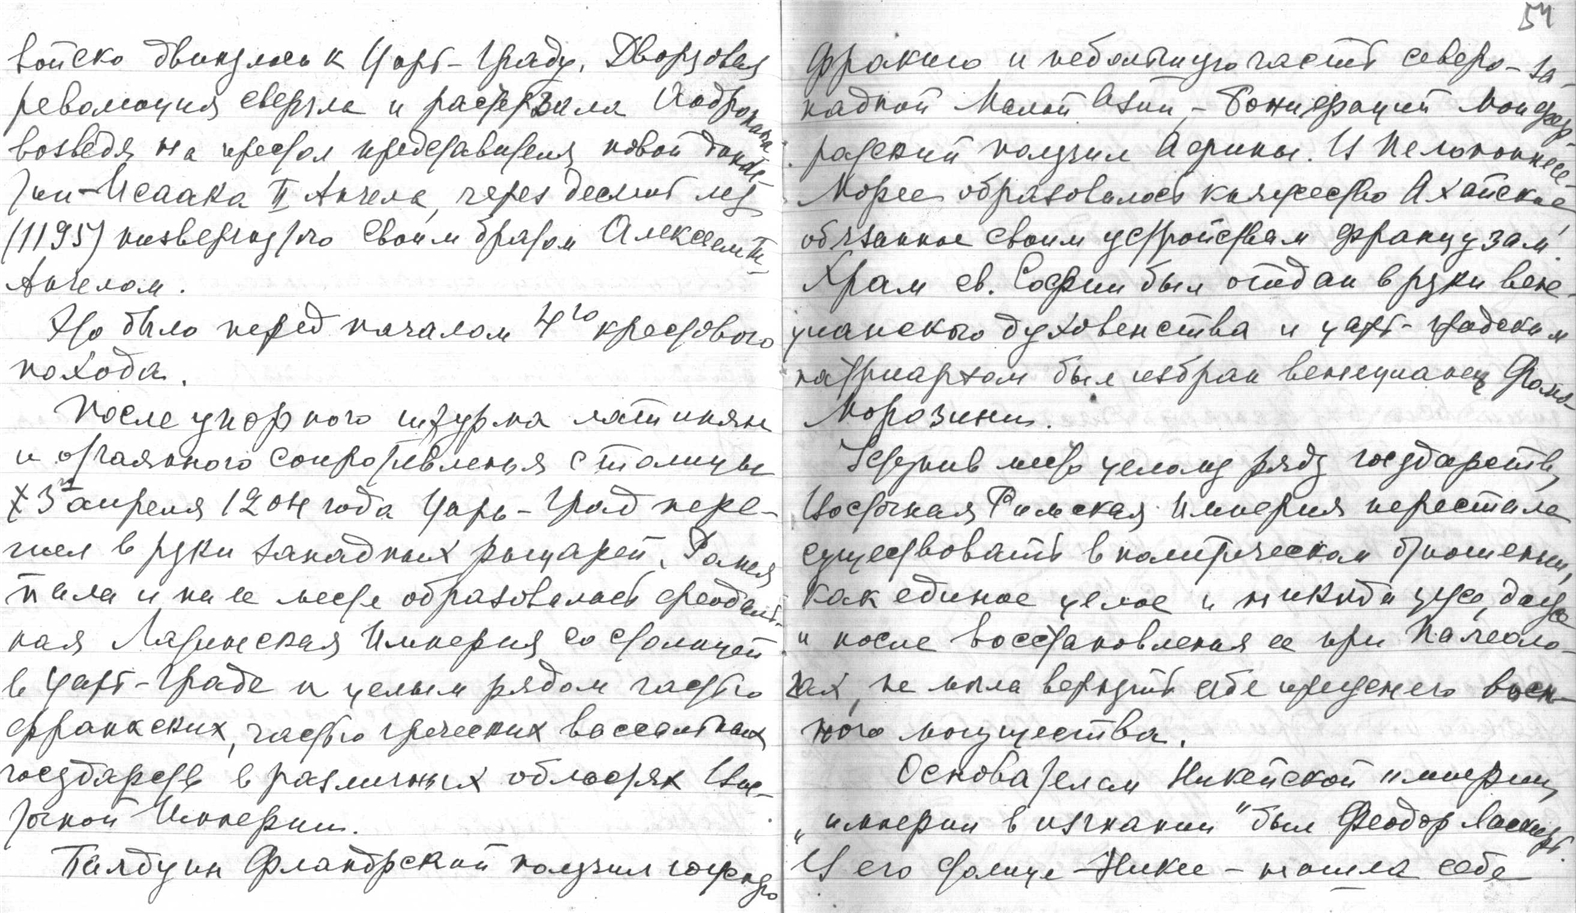 войско двинулось к Царь-Граду. Дворцовая
революция свергла и растерзала Андроника
возведя на престол представителя новой динас-
тии - Исаака II Ангела, через десять лет
(1195) низвергнутого своим братом Алексеем III
Ангелом.
Это было перед началом 4го крестового
похода.
После упорного штурма латинян
и отчаянного сопротивления столицы
13 апреля 1204 года Царь-Град пере-
шел в руки западных рыцарей.
пала и на ее месте образовалась феодаль-
ная Латинская Империя со столицей
в Царь-Граде и целым рядом частью
франкских, частью греческих вассальных
государств в различных областях Вос-
точной Империи.
Балдуин Фландрский получил южную
54
Фракию и небольшую часть северо-за-
падной Малой Азии, - Бонифаций Монфер-
ратский получил Афины. В Пелопоннесе-
Морее образовалось княжество Ахайское,
обязанное своим устройством французам.
Храм св. Софии был отдан в руки вене-
цианского духовенства и царь-градским
патриархом был избран венецианец Фома
Морозини.
Уступив место целому ряду государств,
Восточная Римская Империя перестала
существовать в политическом отношении,
как единое целое и никогда уже, даже
и после восстановления ее при Палеоло-
гах, не могла вернуть себе прежнего воен-
ного могущества.
Основателем Никейской империи,
"империи в изгнании" был Феодор Ласкарь.
В его столице - Никее - нашла себе